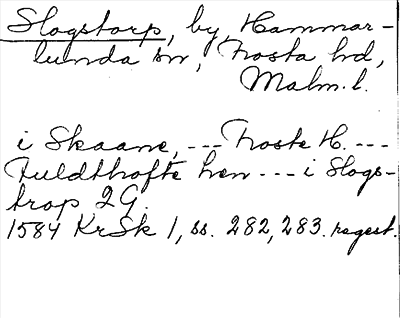 Slogstorp, by, Hammar-
lunda sn, Frosta hd,
Malm. l.
i Skaane, --- Froste H. ---
Fuldthoftehen --- i Slogs-
trop 2 G.
1584 KrSk 1, ss. 282, 283. regest.